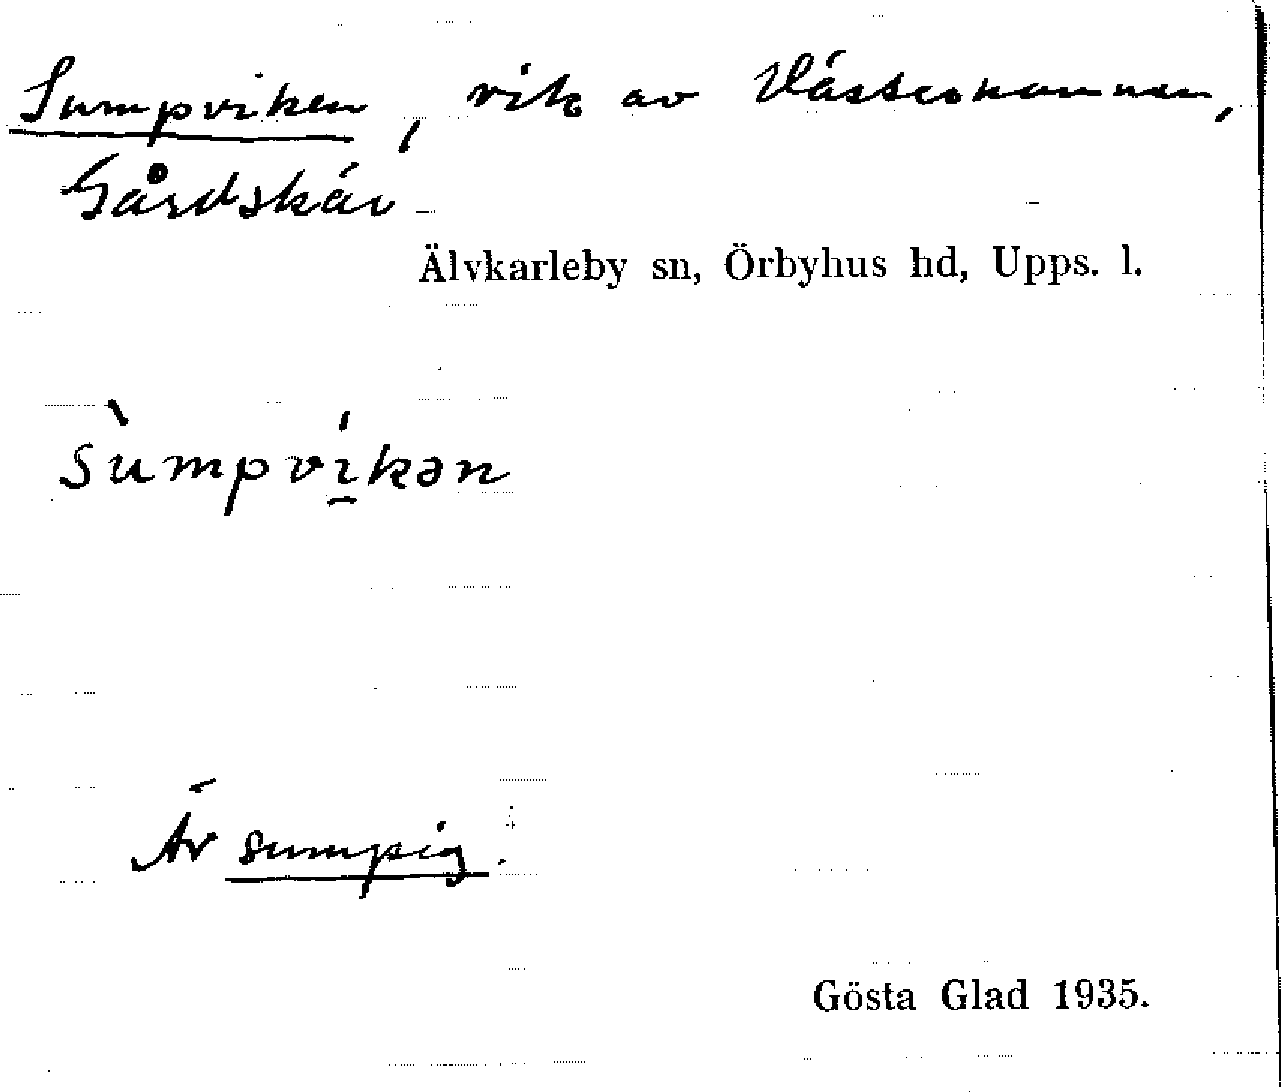 Sumpviken, vik av Västerhamnen,
Gårdskär
Älvkarleby sn, Örbyhus hd, Upps. l.
sùmpví̱kən
Är sumpig.
Gösta Glad 1935.